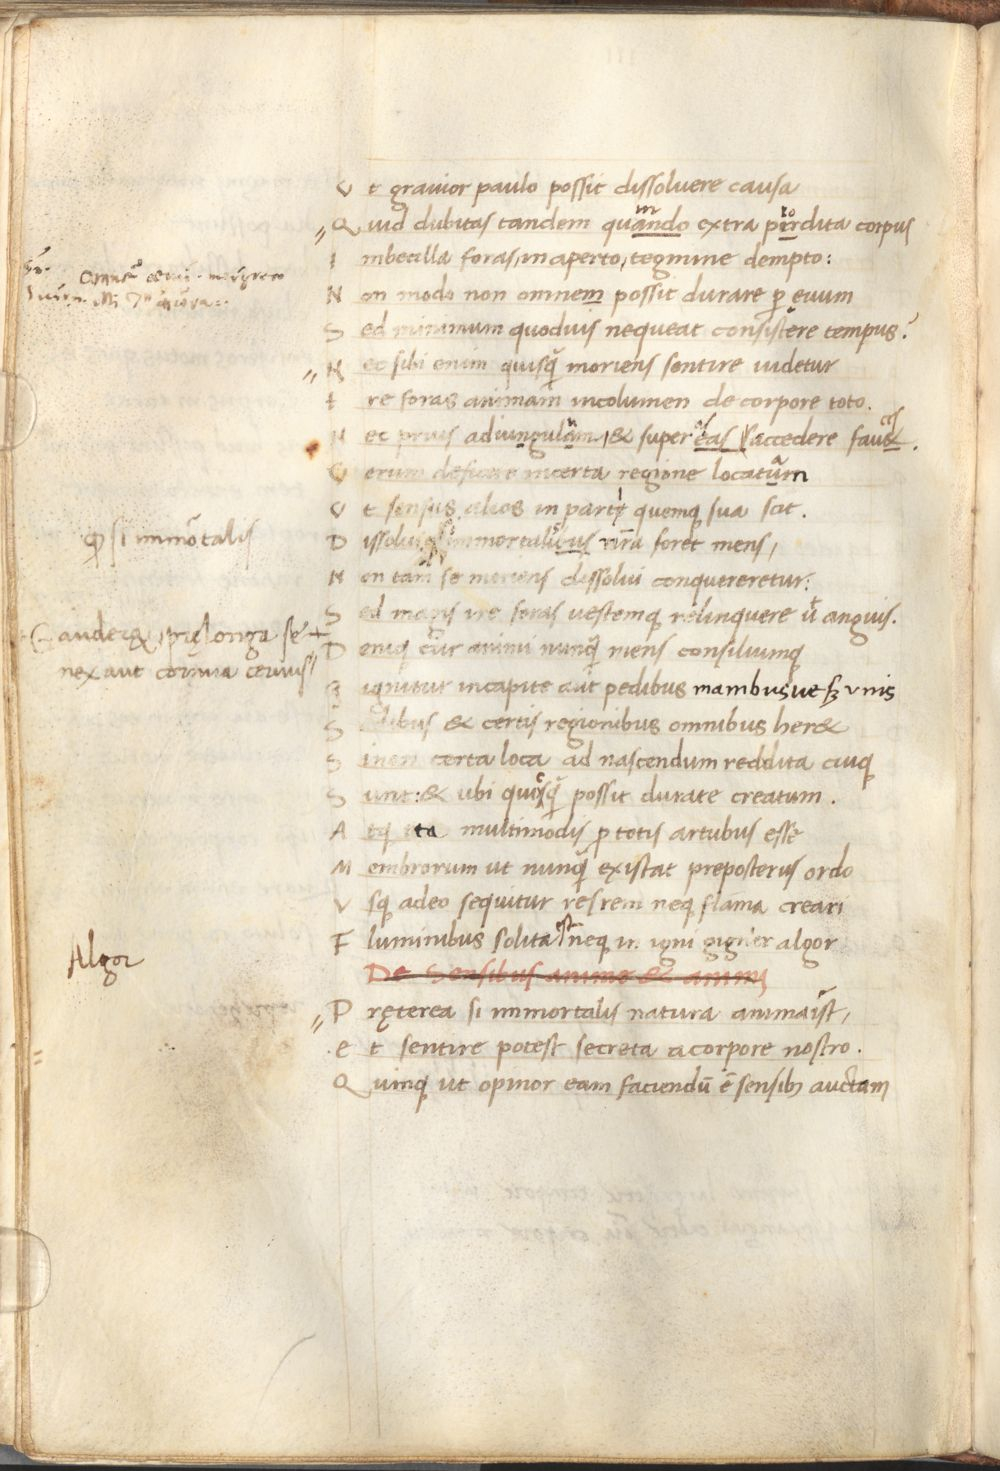 Vt grauior paulo possit dissoluere causa
Quid dubitas tandem quando extra prdita corpus
Imbecilla foras, in aperto, tegmine dempto:
Non modo non omnem possit durare ꝑ ęuum
Sed minimum quoduis nequeat consistere tempus?
Nec sibi enim quisq̃ moriens sentire uidetur
Ire foras animam incolumen de corpore toto.
Nec prius ad iungulam, & super eas accedere fauces.
Verum deficere in certa regione locatam
Vt sensus alios in parti quemq; sua scit.
Dissolui immortalibus nr̃a foret mens,
Non tam se moriens dissolui conquereretur:
Sed magis ire foras uestemq; relinquere ut anguis.
Deniq; cur animi nunq̃ mens consiliumq;
Gignitur in capite aut pedibus manibusue & unis
Sedibus & certis regionibus omnibus her&
Si non certa loca ad nascendum reddita cuiq;
Sunt: & ubi quicq̃ possit durare creatum.
Atq; ita multimodis ꝑ totis artubus esse
Membrorum ut nunq̃ ęxistat preposterus ordo
Vsq; adeo sequitur res rem neq; flāma creari
Fluminibus solita est neq; in igni gignier algor
De Sensibus animę & animi
Pręterea si immortalis natura animaist,
Et sentire potest secreta a corpore nostro.
Quinq; ut opinor eam faciendū ē sensib; auctam
ꝙ si immōtalis
Gauder&, pręlonga se
nex aut cornua ceruus
Algor